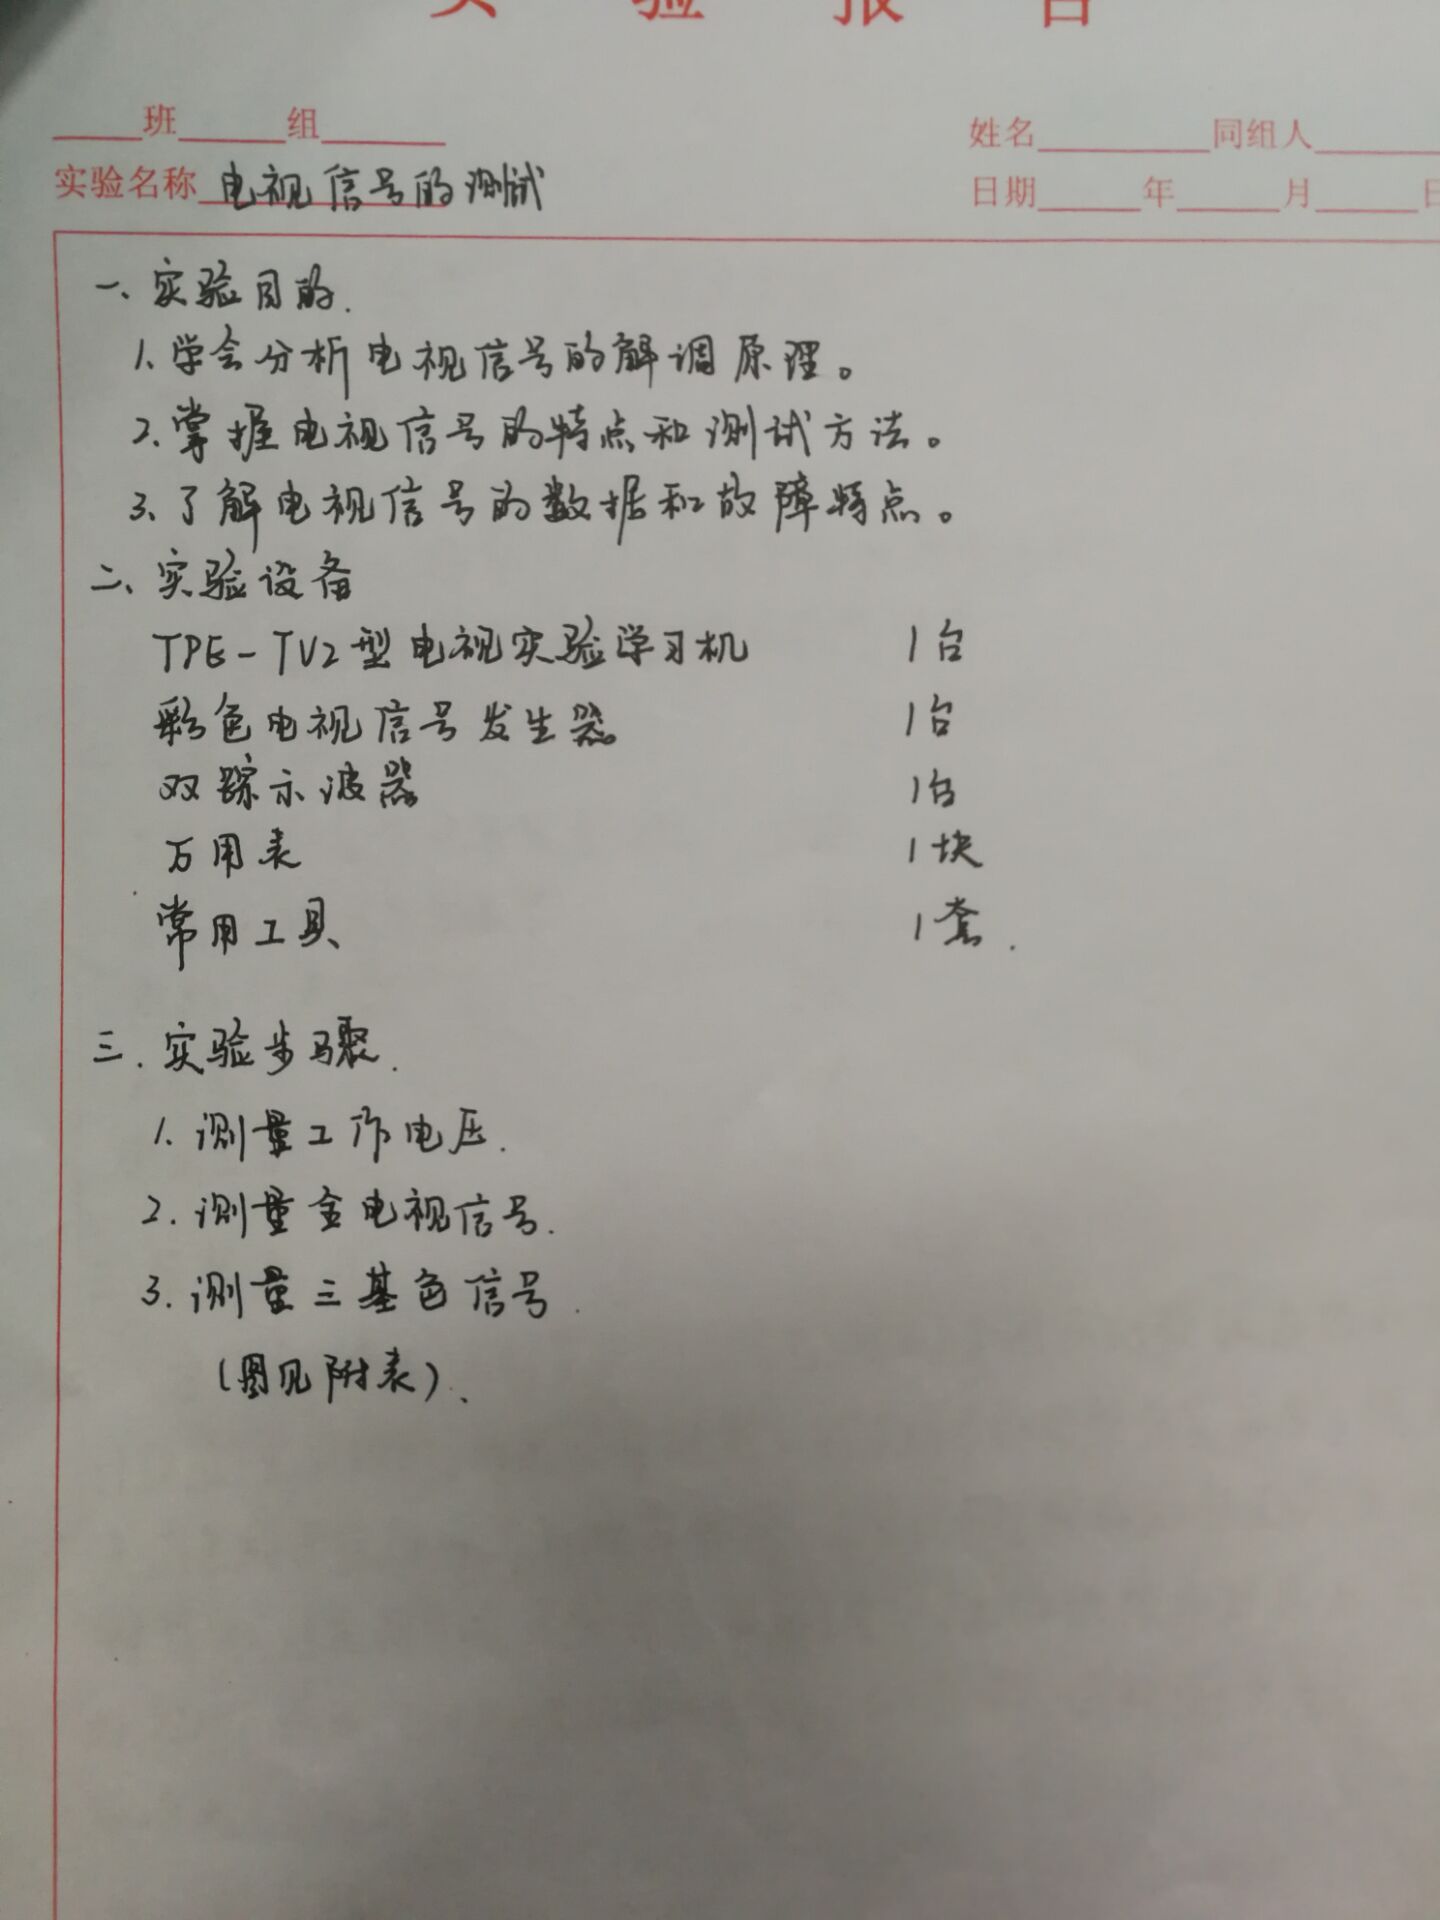 实验报告
____班____组____ 姓名____同组人____
实验名称 电视信号的测试 日期____年____月____日
一、实验目的.
1.学会分析电视信号的解调原理。
2.掌握电视信号的特点和测试方法。
3.了解电视信号的数据和故障特点。
二、实验设备
TPE-TV2型电视实验学习机 1台
彩色电视信号发生器 1台
双踪示波器 1台
万用表 1块
常用工具 1套.
三.实验步骤.
1.测量工作电压.
2.测量全电视信号.
3.测量三基色信号.
(图见附表).